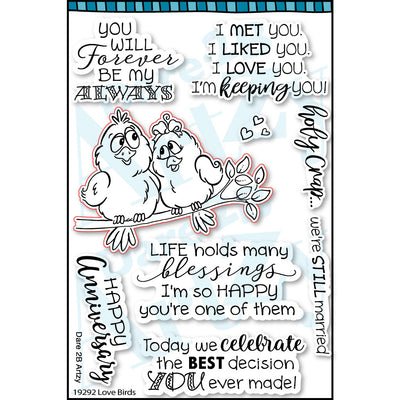 YOU
WILL
Forever
BE MY
ALWAYS
I MET YOU.
I LIKED YOU.
I LOVE YOU.
I'm keeping YOU!
Holy Crap...
we're STILL married
LIFE holds many
blessings
I'm so HAPPY
you're one of them
HAPPY
Anniversary
Today we celebrate
the BEST decision
YOU ever made!
Dare 2B Artzy
19292 Love Birds